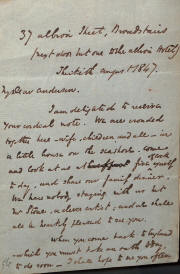 37 Albion Street, Broadstairs
(next door but one to the Albion Hotel)
Thirtieth August 1847.
My Dear Andersen.
I am delighted to receive
your cordial note. We are crowded
together here - wife, children and all - in
a little house on the seashore. Come
and look at us at five o'Clock
to day, and share our family dinner.
We have nobody staying with us but
Mr Stone, a clever artist, and we shall
all be heartily pleased to see you.
When you come back to England
- which you must take an oath to do,
to do soon - I shall hope to see you often